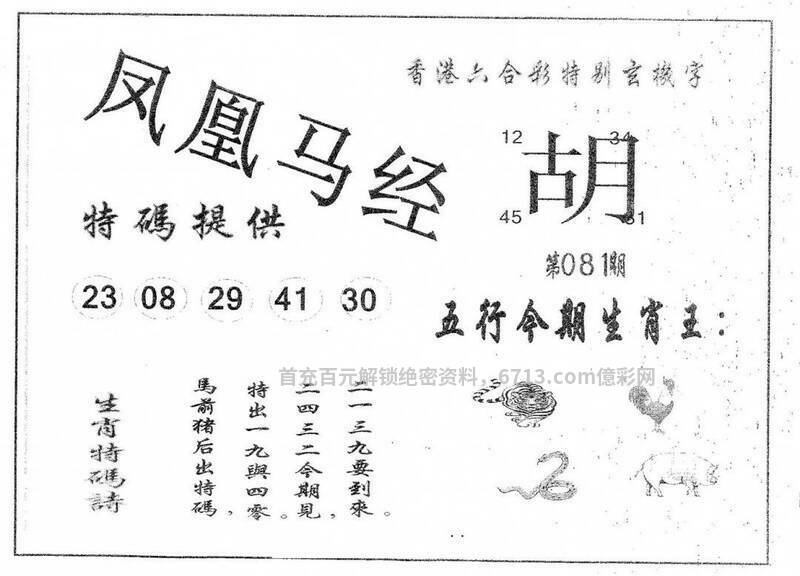 凤凰马经
香港六合彩特别玄機字
12 34
胡
45 31
特碼提供
第081期
23 08 29 41 30
五行今期生肖王：
首充百元解锁绝密资料，6713.com億彩网
二一三九要到來。
二四三二今期見，
特出一九與四零。
馬前猪后出特碼，
生肖特碼詩